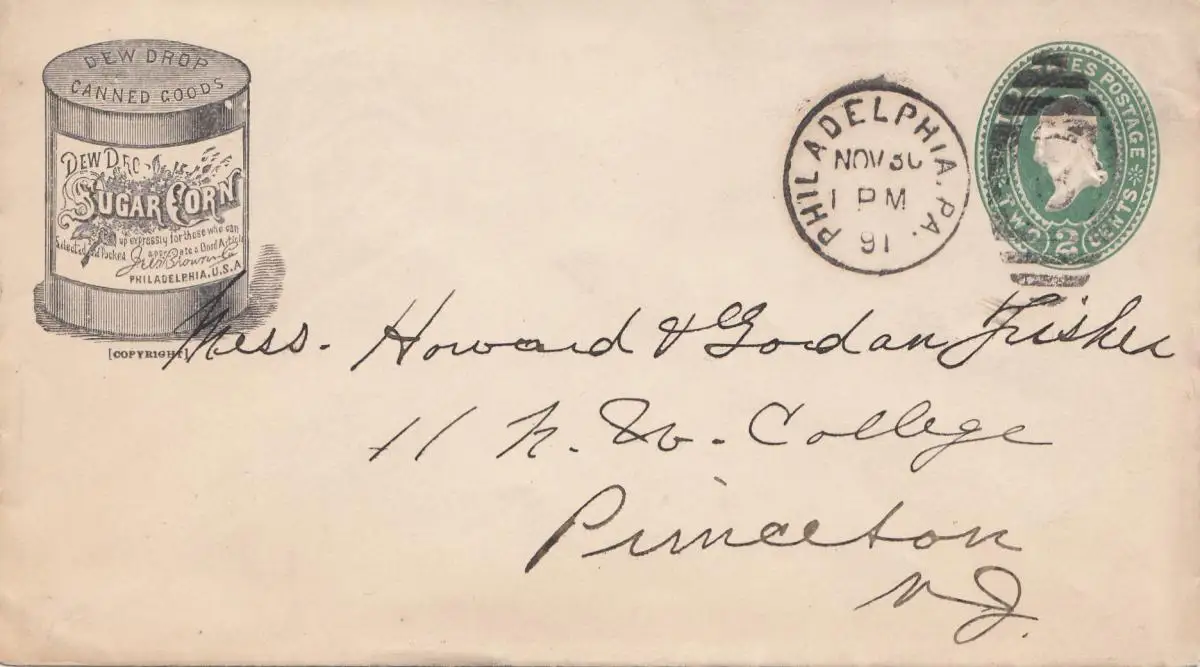 DEW DROP
CANNED GOODS
DEW DRO
SUGAR CORN
Selected and Packed up expressly for those who can
appreciate a Good Article
PHILADELPHIA, U.S.A
[COPYRIGHT]
PHILADELPHIA, PA.
NOV 30
1 PM
91
STATES POSTAGE
TWO 2 CENTS
Mess. Howard & Gordan Fisher
11 N. W. College
Princeton
N J.